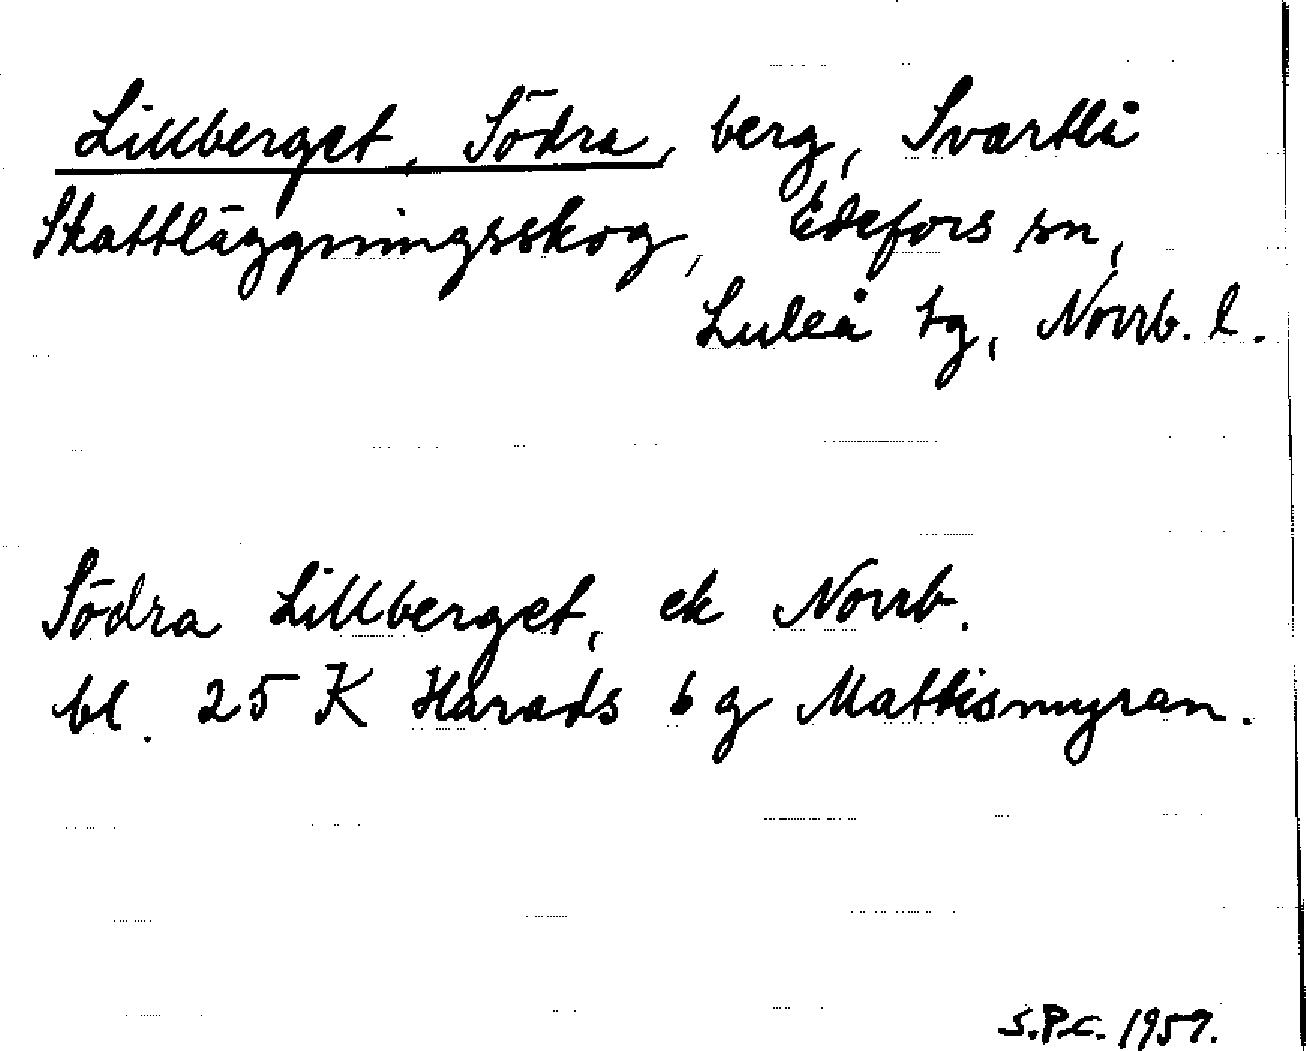 Lillberget, Södra, berg, Svartlå
Skattläggningsskog, Edefors sn,
Luleå tg, Norrb. l.
Södra Lillberget, ek Norrb.
bl. 25 K Harads 6 g Mattismyran.
S.P.C. 1959.